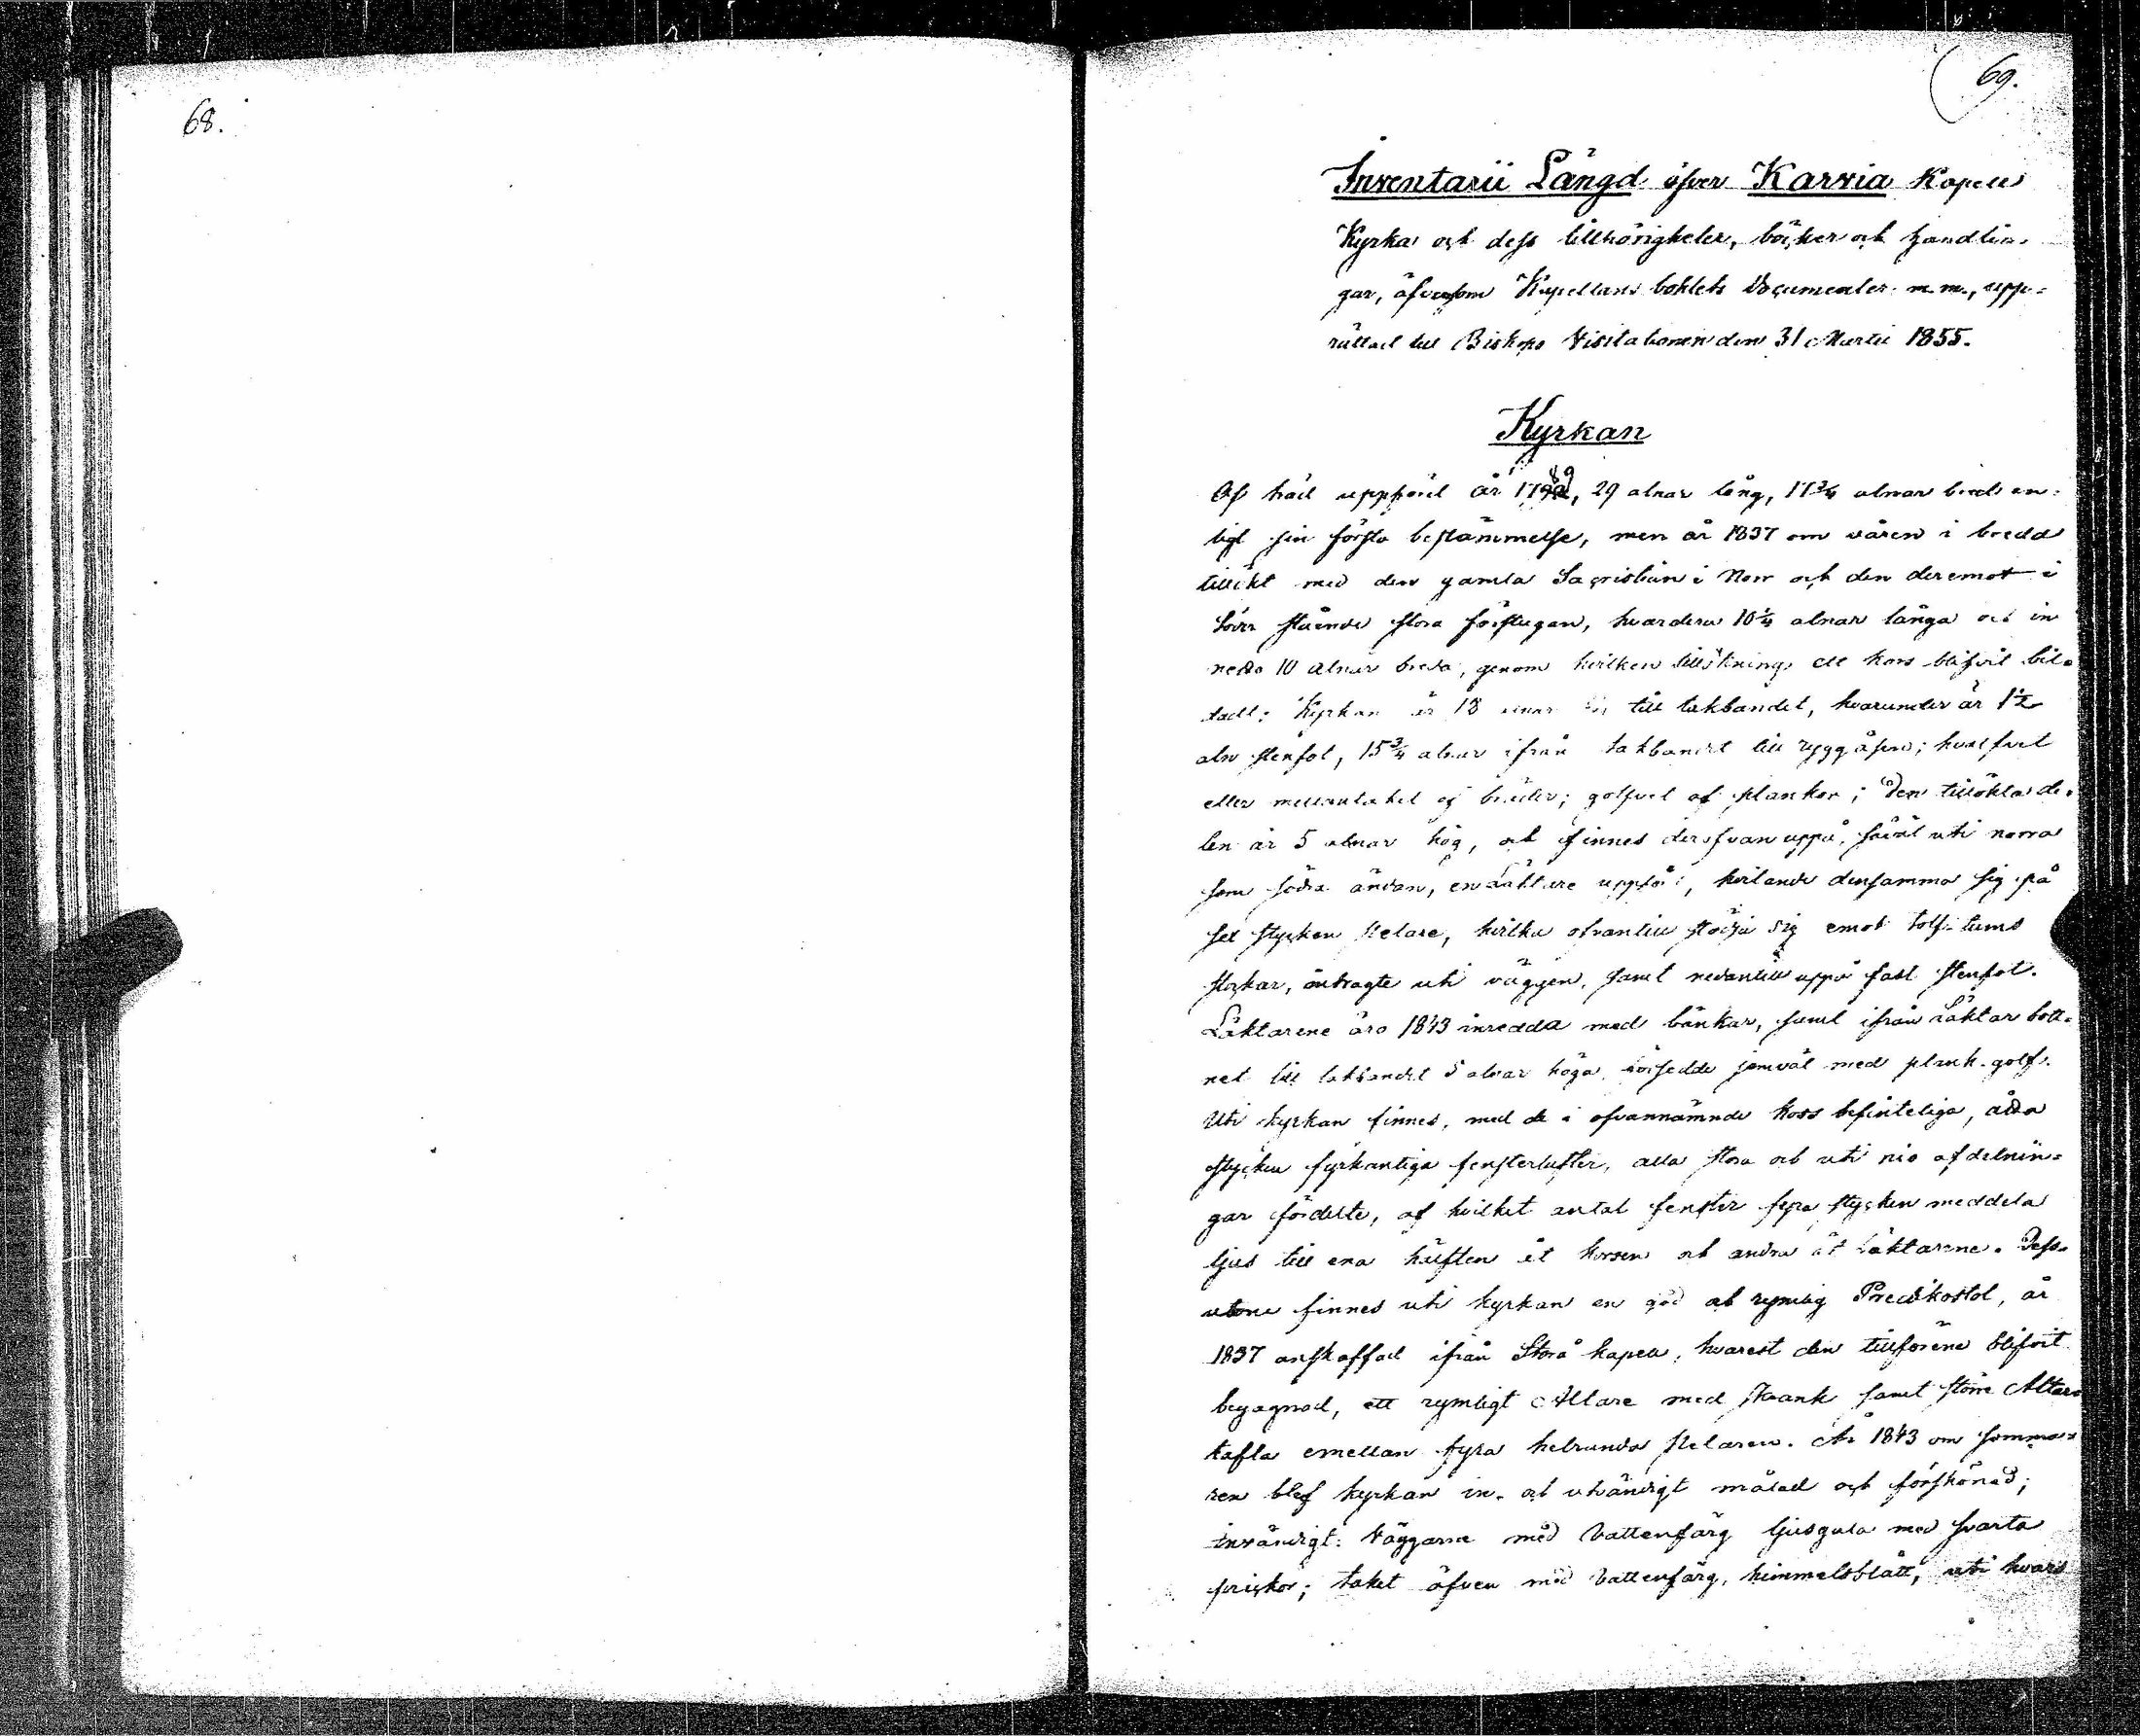 68.
69.
Inventarii Längd öfver Karvia Kapells
Kyrka och dess tillhörigheter, böcker och handlin-
gar, äfvensom Kapellans bohlets Documenter m. m., upp-
rättad till Biskops Visitationen den 31 Martii 1855.
Kyrkan
Af träd uppförd år 1789, 29 alnar lång, 17 3/4 alnar bred en-
ligt sin första bestämmelse, men år 1837 om våren i bredd
tillökt med den gamla Sacristian i Norr och den deremot i
Söder stående stora förstugan, hvardera 10 1/4 alnar långa och in
nedo 10 alnar breda, genom hvilken tillökning ett kors blifvit bil-
dadt: Kyrkan är 18 alnar till takbandet, hvarunder är 1 1/2
aln stenfot, 15 3/4 alnar ifrån takbandet till ryggåsen; hvalfvet
eller mellantaket af bräder; golfvet af plankor; Den tillökta de-
len är 5 alnar hög, och finnes der ofvan uppå, såväl uti norra
som södra ändan, en Läktare uppförd, hvilande densamma sig på
sex stycken pelare, hvilka ofvantill stödja sig emot tolf-tums
stockar, indragte uti väggen, samt nedantill uppå fast stenfot.
Läktarene äro 1843 inredda med bänkar, samt ifrån Läktar bott-
net till takbandet 5 alnar höga, försedde jemväl med plank-golf.
Uti kyrkan finnes, med de i ofvannämnde kors befinteliga, åtta
stycken fyrkantiga fensterlufter, alla stora och uti nio afdelnin-
gar fördelte, af hvilket antal fenster fyra stycken meddela
ljus till ena hälften åt korsen och andra åt Läktarene. Dess-
utom finnes uti kyrkan en god och rymlig Predikostol, år
1837 anskaffad ifrån Storå kapell, hvarest den tillförene blifvit
begagnad, ett rymligt Altare med skrank samt större Altar-
tafla emellan fyra helrunda pelaren. År 1843 om somma-
ren blef kyrkan in- och utvändigt målad och förskönad;
invändigt: Väggarne med Vattenfärg ljusgula med svarta
prickor; taket äfven med Vattenfärg, himmelsblått, uti hvars